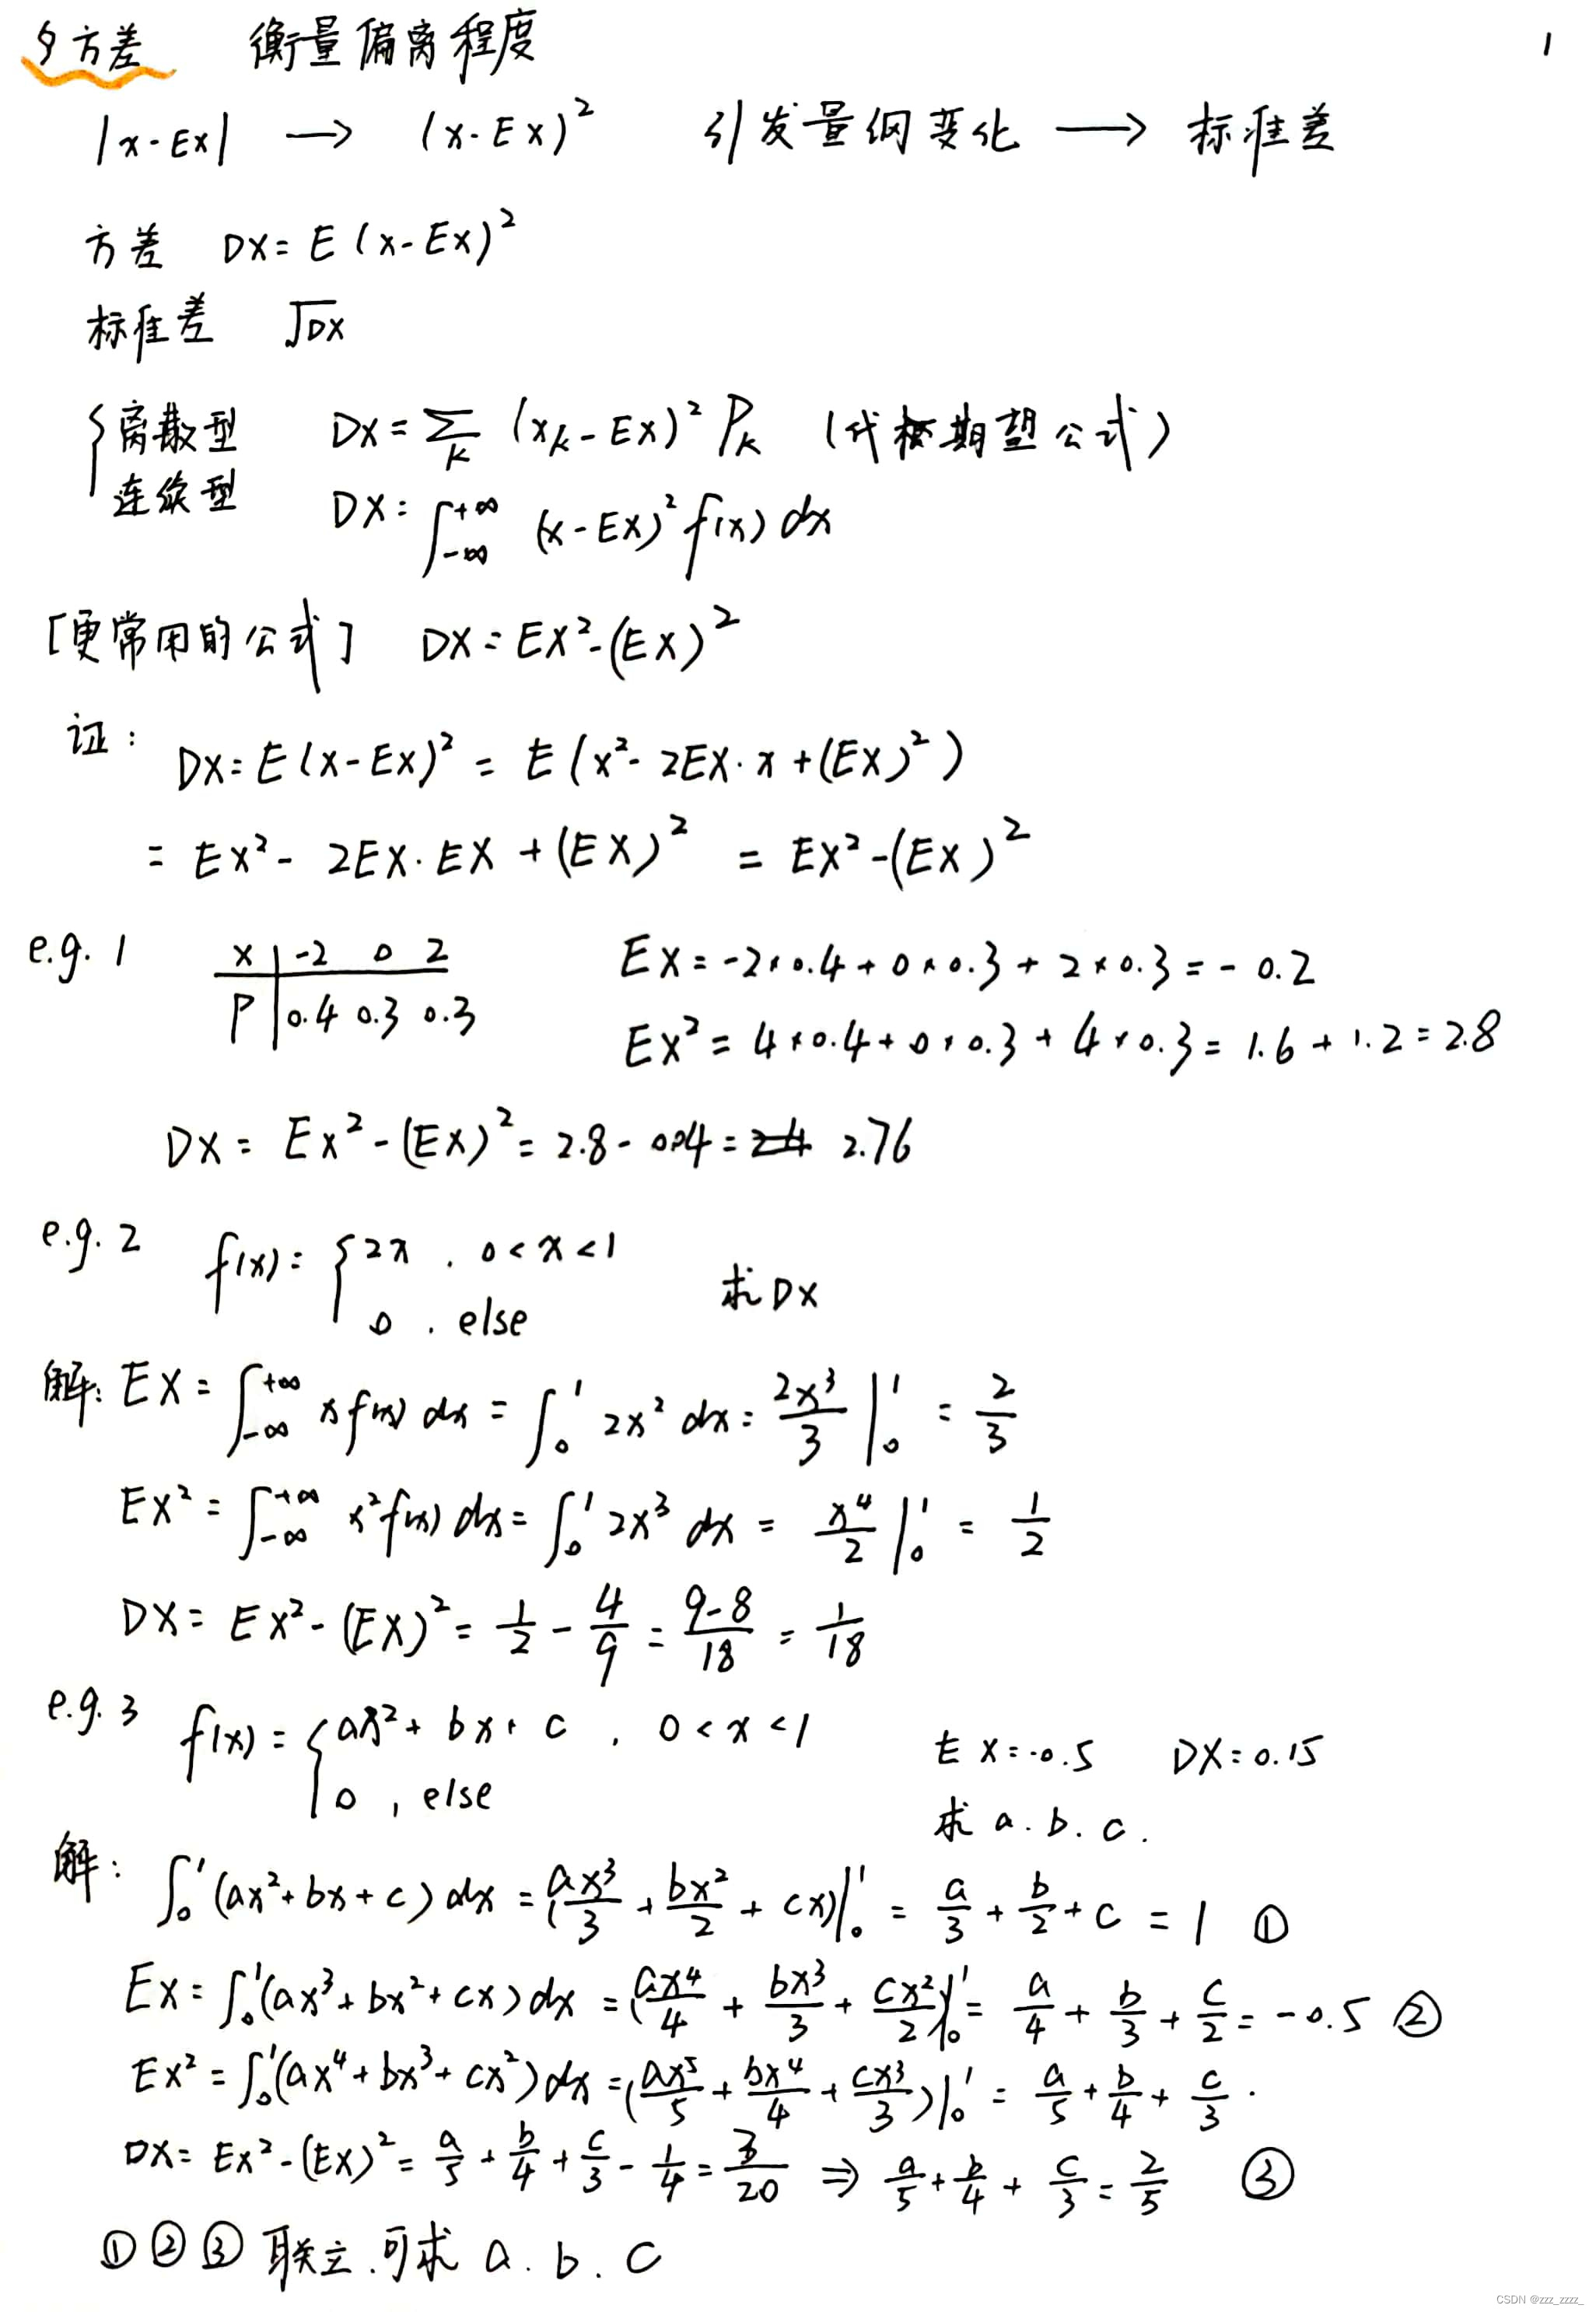 §方差 衡量偏离程度 1
|x-EX| → (x-EX)² 引发量纲变化 → 标准差
方差 DX=E(x-EX)²
标准差 √DX
{离散型 DX=∑k (xk-EX)² Pk (代 期望公式)
连续型 DX=∫₋∞⁺∞ (x-EX)² f(x) dx
[更常用的公式] DX=EX²-(EX)²
证: DX=E(x-EX)² = E(x²-2EX·x+(EX)²)
= EX²-2EX·EX+(EX)² = EX²-(EX)²
e.g. 1 X | -2 0 2 EX=-2×0.4+0×0.3+2×0.3=-0.2
P | 0.4 0.3 0.3 EX²=4×0.4+0×0.3+4×0.3=1.6+1.2=2.8
DX=EX²-(EX)²=2.8-0.04= 2.76
e.g. 2 f(x)={2x, 0<x<1
0, else 求DX
解: EX=∫₋∞⁺∞ xf(x) dx=∫₀¹ 2x² dx=2x³/3 |₀¹ = 2/3
EX²=∫₋∞⁺∞ x²f(x) dx=∫₀¹ 2x³ dx = x⁴/2 |₀¹ = 1/2
DX=EX²-(EX)²=1/2-4/9=(9-8)/18=1/18
e.g. 3 f(x)={ax²+bx+c, 0<x<1 EX=-0.5 DX=0.15
0, else 求a.b.c.
解: ∫₀¹(ax²+bx+c) dx=(ax³/3+bx²/2+cx)|₀¹ = a/3+b/2+c=1 ①
EX=∫₀¹(ax³+bx²+cx) dx=(ax⁴/4+bx³/3+cx²/2)|₀¹= a/4+b/3+c/2=-0.5 ②
EX²=∫₀¹(ax⁴+bx³+cx²) dx=(ax⁵/5+bx⁴/4+cx³/3)|₀¹=a/5+b/4+c/3.
DX=EX²-(EX)²=a/5+b/4+c/3-1/4=3/20 ⇒ a/5+b/4+c/3=2/5 ③
①②③联立.可求 a.b.c
CSDN @zzz_zzzz_